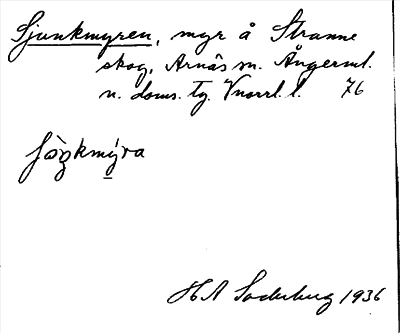 Sjunkmyren, myr å Stranne
skog, Arnäs sn. Ångerml.
n. doms. tg. Vnorrl. l. 76
mỳra
H A Söderberg 1936